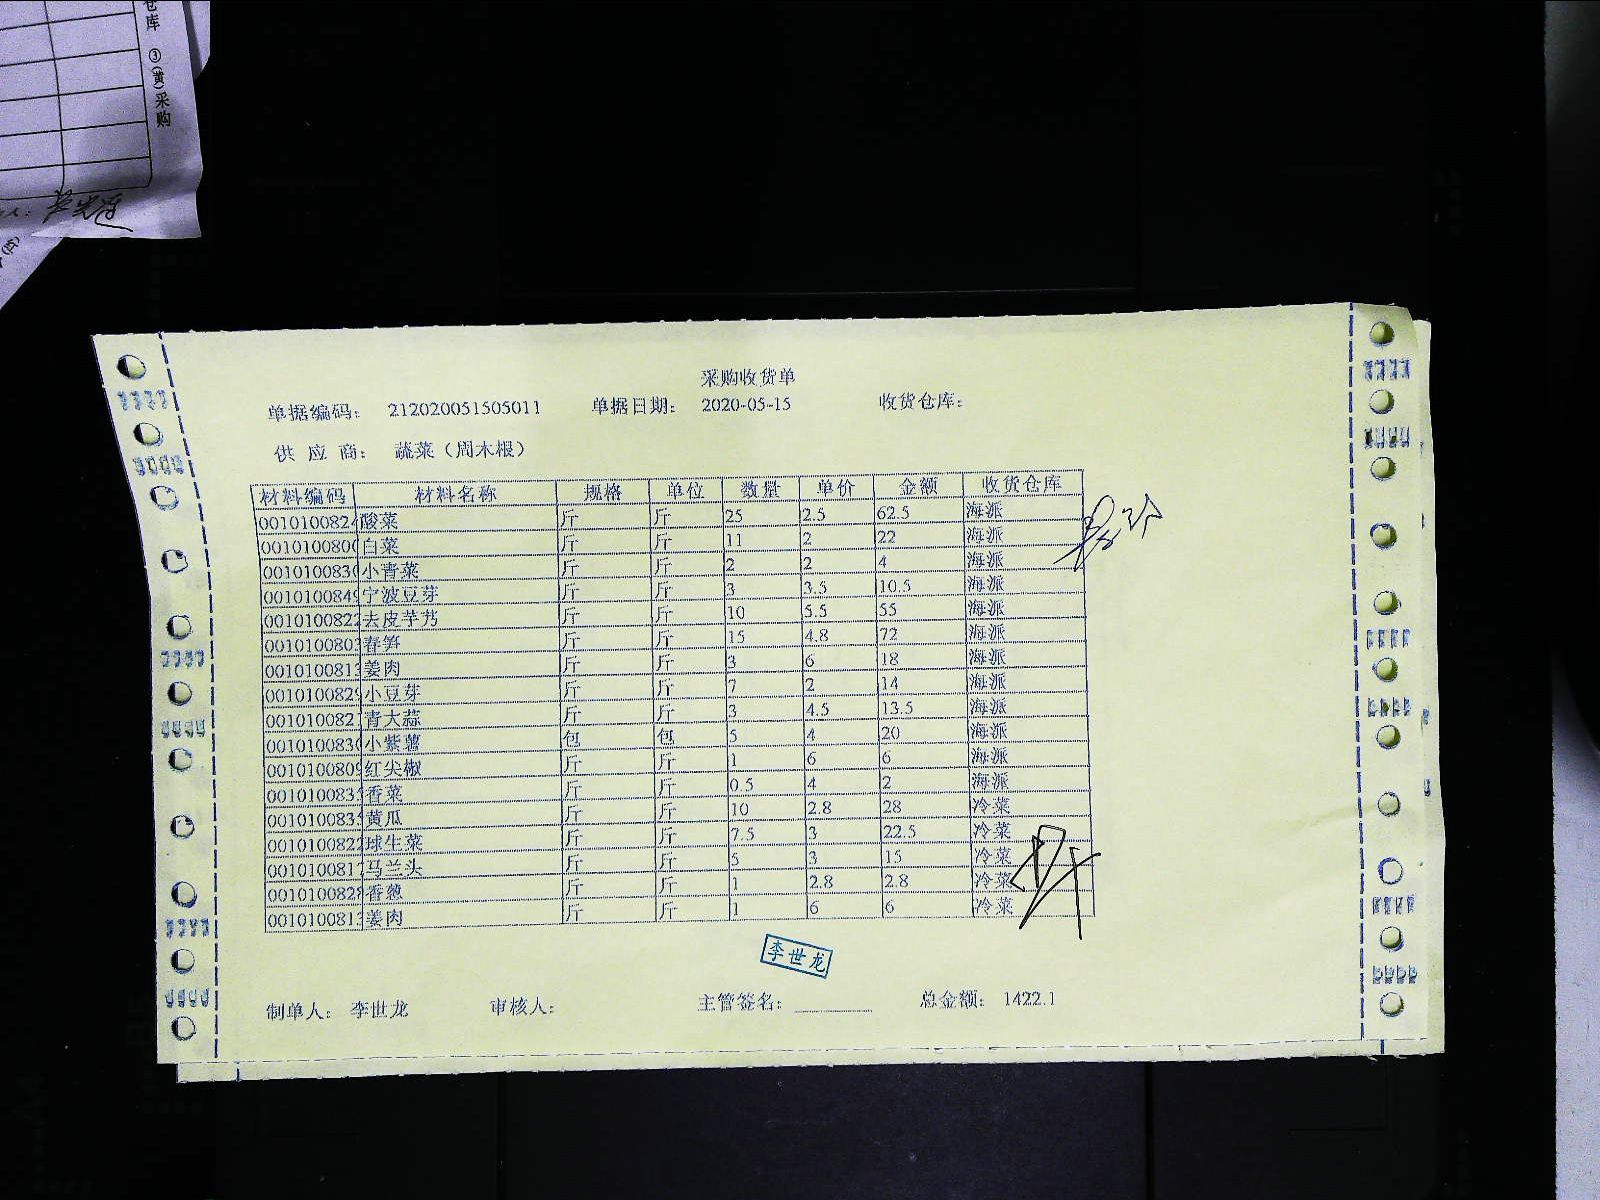 仓库 ③(黄)采购
采购收货单
单据编码: 212020051505011 单据日期: 2020-05-15 收货仓库:
供 应 商: 蔬菜（周木根）
材料编码 材料名称 规格 单位 数量 单价 金额 收货仓库
0010100824 酸菜 斤 斤 25 2.5 62.5 海派
001010080 白菜 斤 斤 11 2 22 海派
001010083 小青菜 斤 斤 2 2 4 海派
001010084 宁波豆芽 斤 斤 3 3.5 10.5 海派
001010082 去皮芋艿 斤 斤 10 5.5 55 海派
001010080 春笋 斤 斤 15 4.8 72 海派
001010081 姜肉 斤 斤 3 6 18 海派
001010082 小豆芽 斤 斤 7 2 14 海派
001010082 青大蒜 斤 斤 3 4.5 13.5 海派
001010083 小紫薯 包 包 5 4 20 海派
001010080 红尖椒 斤 斤 1 6 6 海派
001010083 香菜 斤 斤 0.5 4 2 海派
001010083 黄瓜 斤 斤 10 2.8 28 冷菜
001010082 球生菜 斤 斤 7.5 3 22.5 冷菜
001010081 马兰头 斤 斤 5 3 15 冷菜
001010082 香葱 斤 斤 1 2.8 2.8 冷菜
001010081 姜肉 斤 斤 1 6 6 冷菜
李世龙
制单人: 李世龙 审核人: 主管签名: 总金额: 1422.1